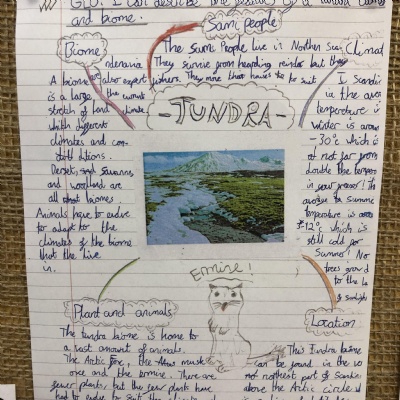 GLO: I can describe the features of a
and biome.
Sami people
Biome
Climat
The Sami People live in Northen Scan
denavia. They survive from hearding reindeer but they
also expert
- TUNDRA -
A biome
is a large
stretch of land
which different
climates and con-
ditions.
Desert, and Savanna,
and woodland are
all biomes.
Animals have to evolve
for adapt to the
climates of the biome
that the live
in.
I Scandi
in the aver
temperature i
winter is aroun
-30°c which is
not far from
double the temper
in your freezer! The
average Summe
temperature is
12°c which is
still cold for
Summer! No
trees grow d
to the la
Sunlight
Ermine!
Plant and animals
The tundra biome is home to
a vast amount of animals.
The Arctic fox, the musk
oxe and the Ermine. There are
fewer plants, but the few plants have
had to evolve to suit the climate
Location
This Tundra biome
can be found in the
northest part of Scandin
above the Arctic circle